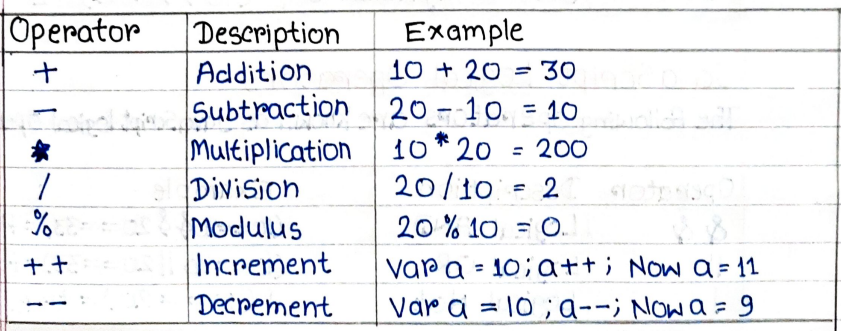 Operator Description Example
+ Addition 10 + 20 = 30
- Subtraction 20 - 10 = 10
* Multiplication 10 * 20 = 200
/ Division 20 / 10 = 2
% Modulus 20 % 10 = 0
++ Increment Var a = 10; a++; Now a = 11
-- Decrement Var a = 10; a--; Now a = 9